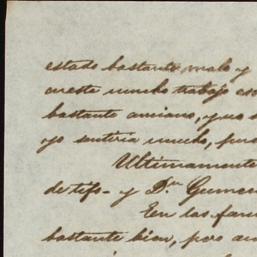 estado bastante malo y
cueste mucho trabajo
bastante anciano, y
yo sentiria mucho,
Ultimamente
de tifo- y Dn
En las
bastante bien, pero